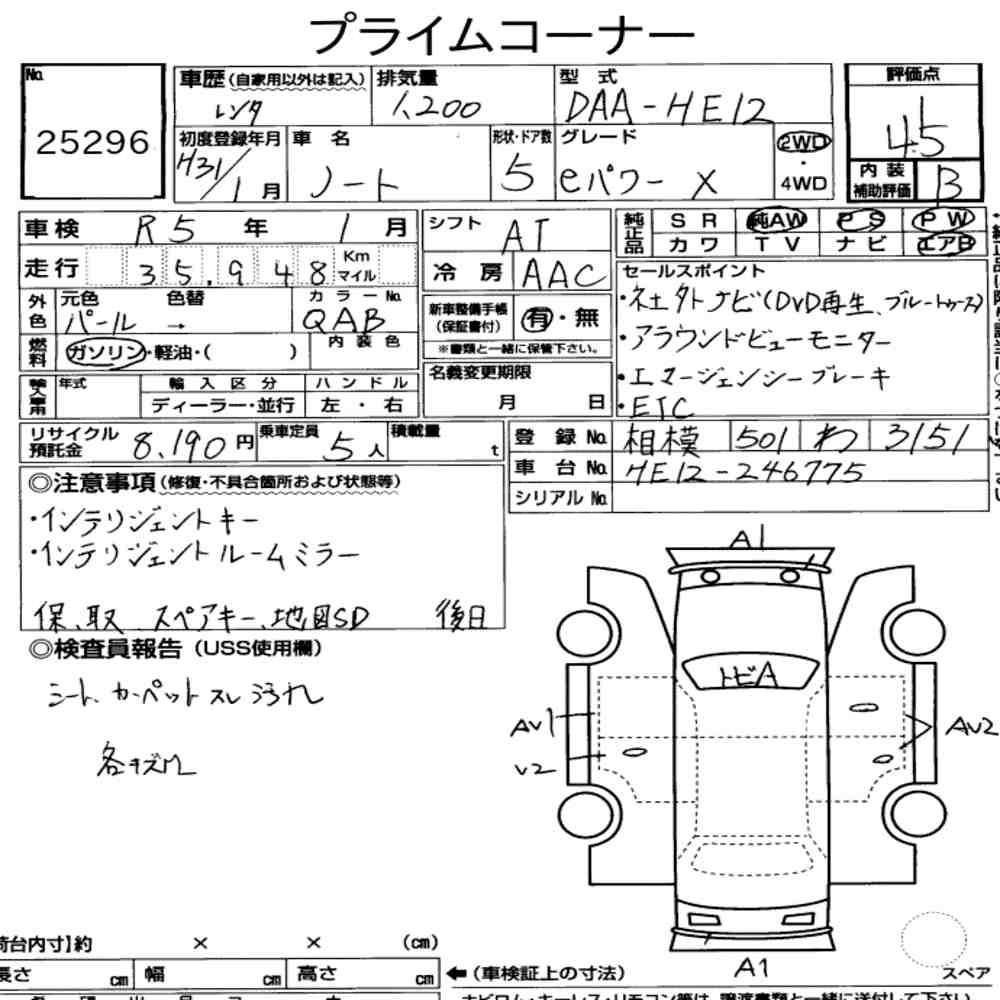 プライムコーナー
No. 25296
車歴(自家用以外は記入) レンタ
排気量 1,200
型式 DAA-HE12
評価点 4.5
初度登録年月 H31/1月
車名 ノート
形状・ドア数 5
グレード eパワー X
2WD・4WD
内装補助評価 B
車検 R5年 1月
シフト AT
純正品 SR 純AW PS PW
カワ TV ナビ エアB
走行 35,948 Km マイル
冷房 AAC
セールスポイント
・ネ土外ナビ(DVD再生、ブルートゥース)
・アラウンドビューモニター
・エマージェンシーブレーキ
・ETC
外色 元色 パール 色替 → カラーNo. QAB
新車整備手帳(保証書付) 有・無
※書類と一緒に保管下さい。
燃料 ガソリン・軽油・( ) 内装色
名義変更期限 月 日
輸入車用 年式 輸入区分 ハンドル
ディーラー・並行 左・右
リサイクル預託金 8,190円 乗車定員 5人 積載量 t
登録No. 相模 501 わ 3151
車台No. HE12-246775
シリアルNo.
◎注意事項(修復・不具合箇所および状態等)
・インテリジェントキー
・インテリジェントルームミラー
保、取、スペアキー、地図SD 後日
◎検査員報告(USS使用欄)
シート、カーペットスレ汚れ
各キズ凹
A1
トビA
AV1
AV2
V2
A1
スペア
荷台内寸】約 × × (cm)
長さ cm 幅 cm 高さ cm
←(車検証上の寸法)
ナビロム・キーレス・リモコン等は、譲渡書類と一緒に送付して下さい。